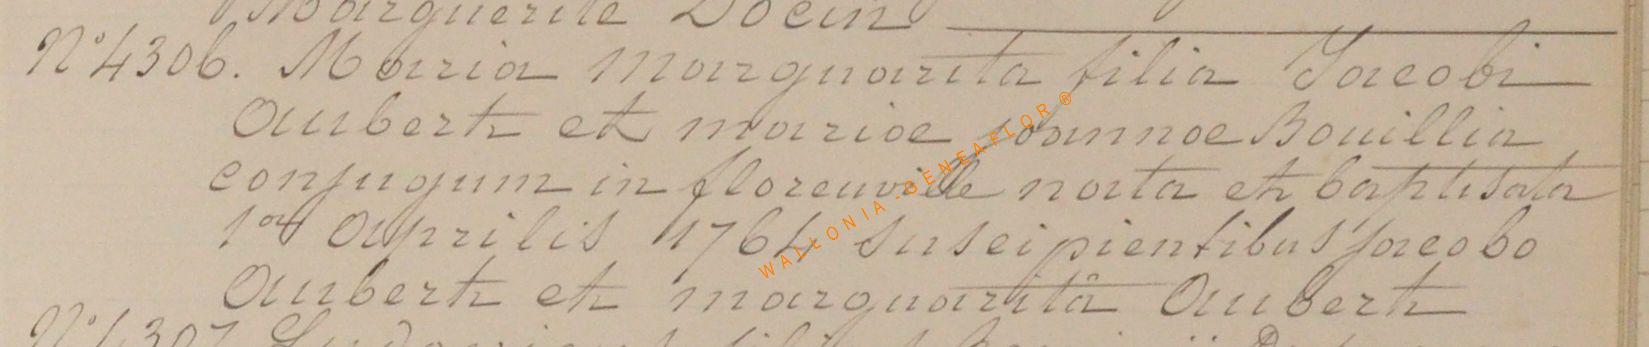 Marguerite Docin
N° 4306. Maria Marguarita filia Jacobi
Aubert et mariae Joannae Bouillia
conjugum in florenville nata et baptisata
1a Aprilis 1764 suscipientibus Jacobo
Aubert et marguaritâ Aubert
N° 4307 Ludovicus filius
WALLONIA-GENEAFLOR®